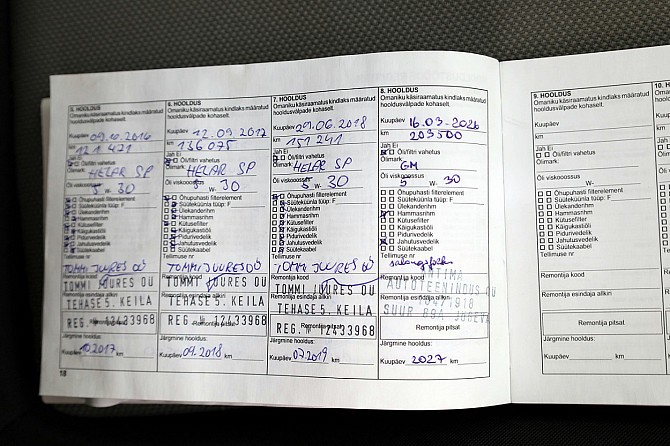 5. HOOLDUS
Omaniku käsiraamatus kindlaks määratud
hooldusvälpade kohaselt.
Kuupäev 09.10.2016
km 121 421
Jah Ei
Õli/filtri vahetus
Õlimark: HELAR SP
Õli viskoossus
5 W- 30
Õhupuhasti filterelement
Süüteküünla tüüp: F
Ülekanderihm
Hammasrihm
Kütusefilter
Käigukastiõli
Pidurivedelik
Jahutusvedelik
Süütekaabel
Tellimuse nr
TOMMI JUURES OÜ
Remontija kood
TOMMI JUURES OU
Remontija esindaja allkiri
TEHASE 5. KEILA
REG. № 12433968
Järgmine hooldus:
Kuupäev 10.2017 km
18
6. HOOLDUS
Omaniku käsiraamatus kindlaks määratud
hooldusvälpade kohaselt.
Kuupäev 12.09 2017
km 136 075
Jah Ei
Õli/filtri vahetus
Õlimark: HELAR SP
Õli viskoossus
5 W- 30
Õhupuhasti filterelement
Süüteküünla tüüp: F
Ülekanderihm
Hammasrihm
Kütusefilter
Käigukastiõli
Pidurivedelik
Jahutusvedelik
Süütekaabel
Tellimuse nr
TOMMI JUURES OÜ
Remontija kood
TOMMI JUURES OU
Remontija esindaja allkiri
TEHASE 5. KEILA
REG. № 12433968
Remontija pitsat
Järgmine hooldus:
Kuupäev 09.2018 km
7. HOOLDUS
Omaniku käsiraamatus kindlaks määratud
hooldusvälpade kohaselt.
Kuupäev 29.06.2018
km 151 241
Jah Ei
Õli/filtri vahetus
Õlimark: HELAR SP
Õli viskoossus
5 W- 30
Õhupuhasti filterelement
Süüteküünla tüüp: F
Ülekanderihm
Hammasrihm
Kütusefilter
Käigukastiõli
Pidurivedelik
Jahutusvedelik
Süütekaabel
Tellimuse nr
TOMMI JUURES OÜ
Remontija kood
TOMMI JUURES OU
Remontija esindaja allkiri
TEHASE 5. KEILA
REG. № 12433968
Remontija pitsat
Järgmine hooldus:
Kuupäev 07.2019 km
8. HOOLDUS
Omaniku käsiraamatus kindlaks määratud
hooldusvälpade kohaselt.
Kuupäev 16.03.2026
km 203500
Jah Ei
Õli/filtri vahetus
Õlimark: GM
Õli viskoossus
5 W- 30
Õhupuhasti filterelement
Süüteküünla tüüp: F
Ülekanderihm
Hammasrihm
Kütusefilter
Käigukastiõli
Pidurivedelik
Jahutusvedelik
Süütekaabel
Tellimuse nr
Remontija kood
AUTOTEENINDUS OÜ
Remontija esindaja allkiri
Remontija pitsat
Järgmine hooldus:
Kuupäev 2027 km
9. HOOLDUS
Omaniku käsiraamatus kindlaks määratud
hooldusvälpade kohaselt.
Kuupäev
km
Jah Ei
Õli/filtri vahetus
Õlimark:
Õli viskoossus
W-
Õhupuhasti filterelement
Süüteküünla tüüp: F
Ülekanderihm
Hammasrihm
Kütusefilter
Käigukastiõli
Pidurivedelik
Jahutusvedelik
Süütekaabel
Tellimuse nr
Remontija kood
Remontija esindaja allkiri
Remontija pitsat
Järgmine hooldus:
Kuupäev km
10.